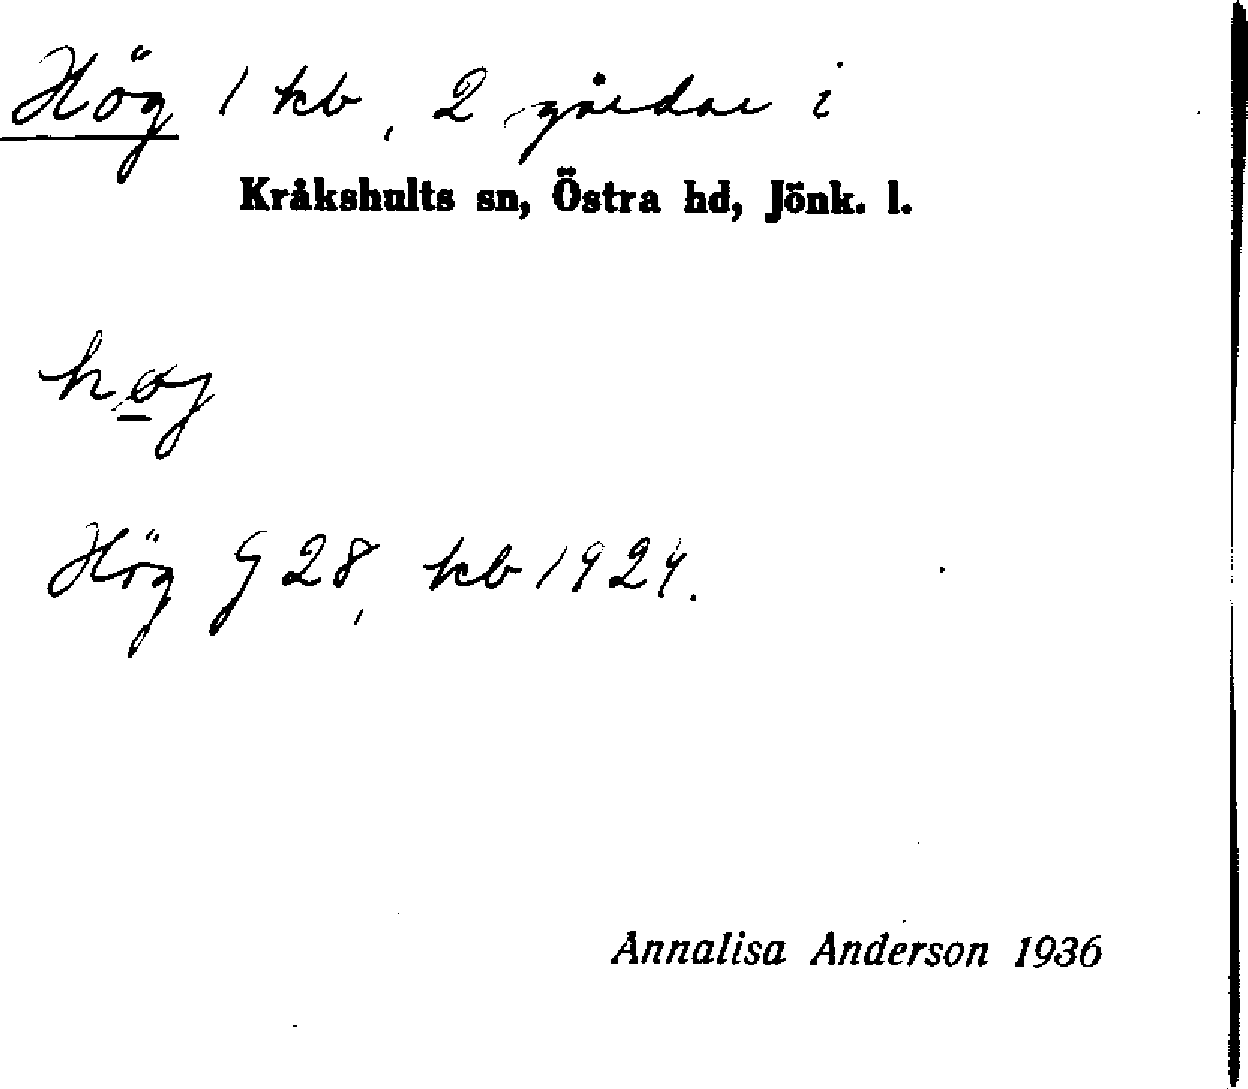 Hög 1 kb, 2 gårdar i
Kråkshults sn, Östra hd, Jönk. l.
høg
Hög G 28, kb 1924.
Annalisa Anderson 1936